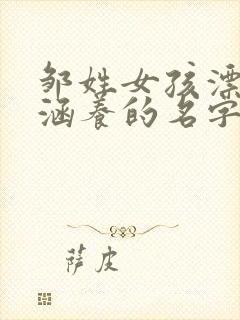 邹姓女孩漂
涵养的名字
萨皮